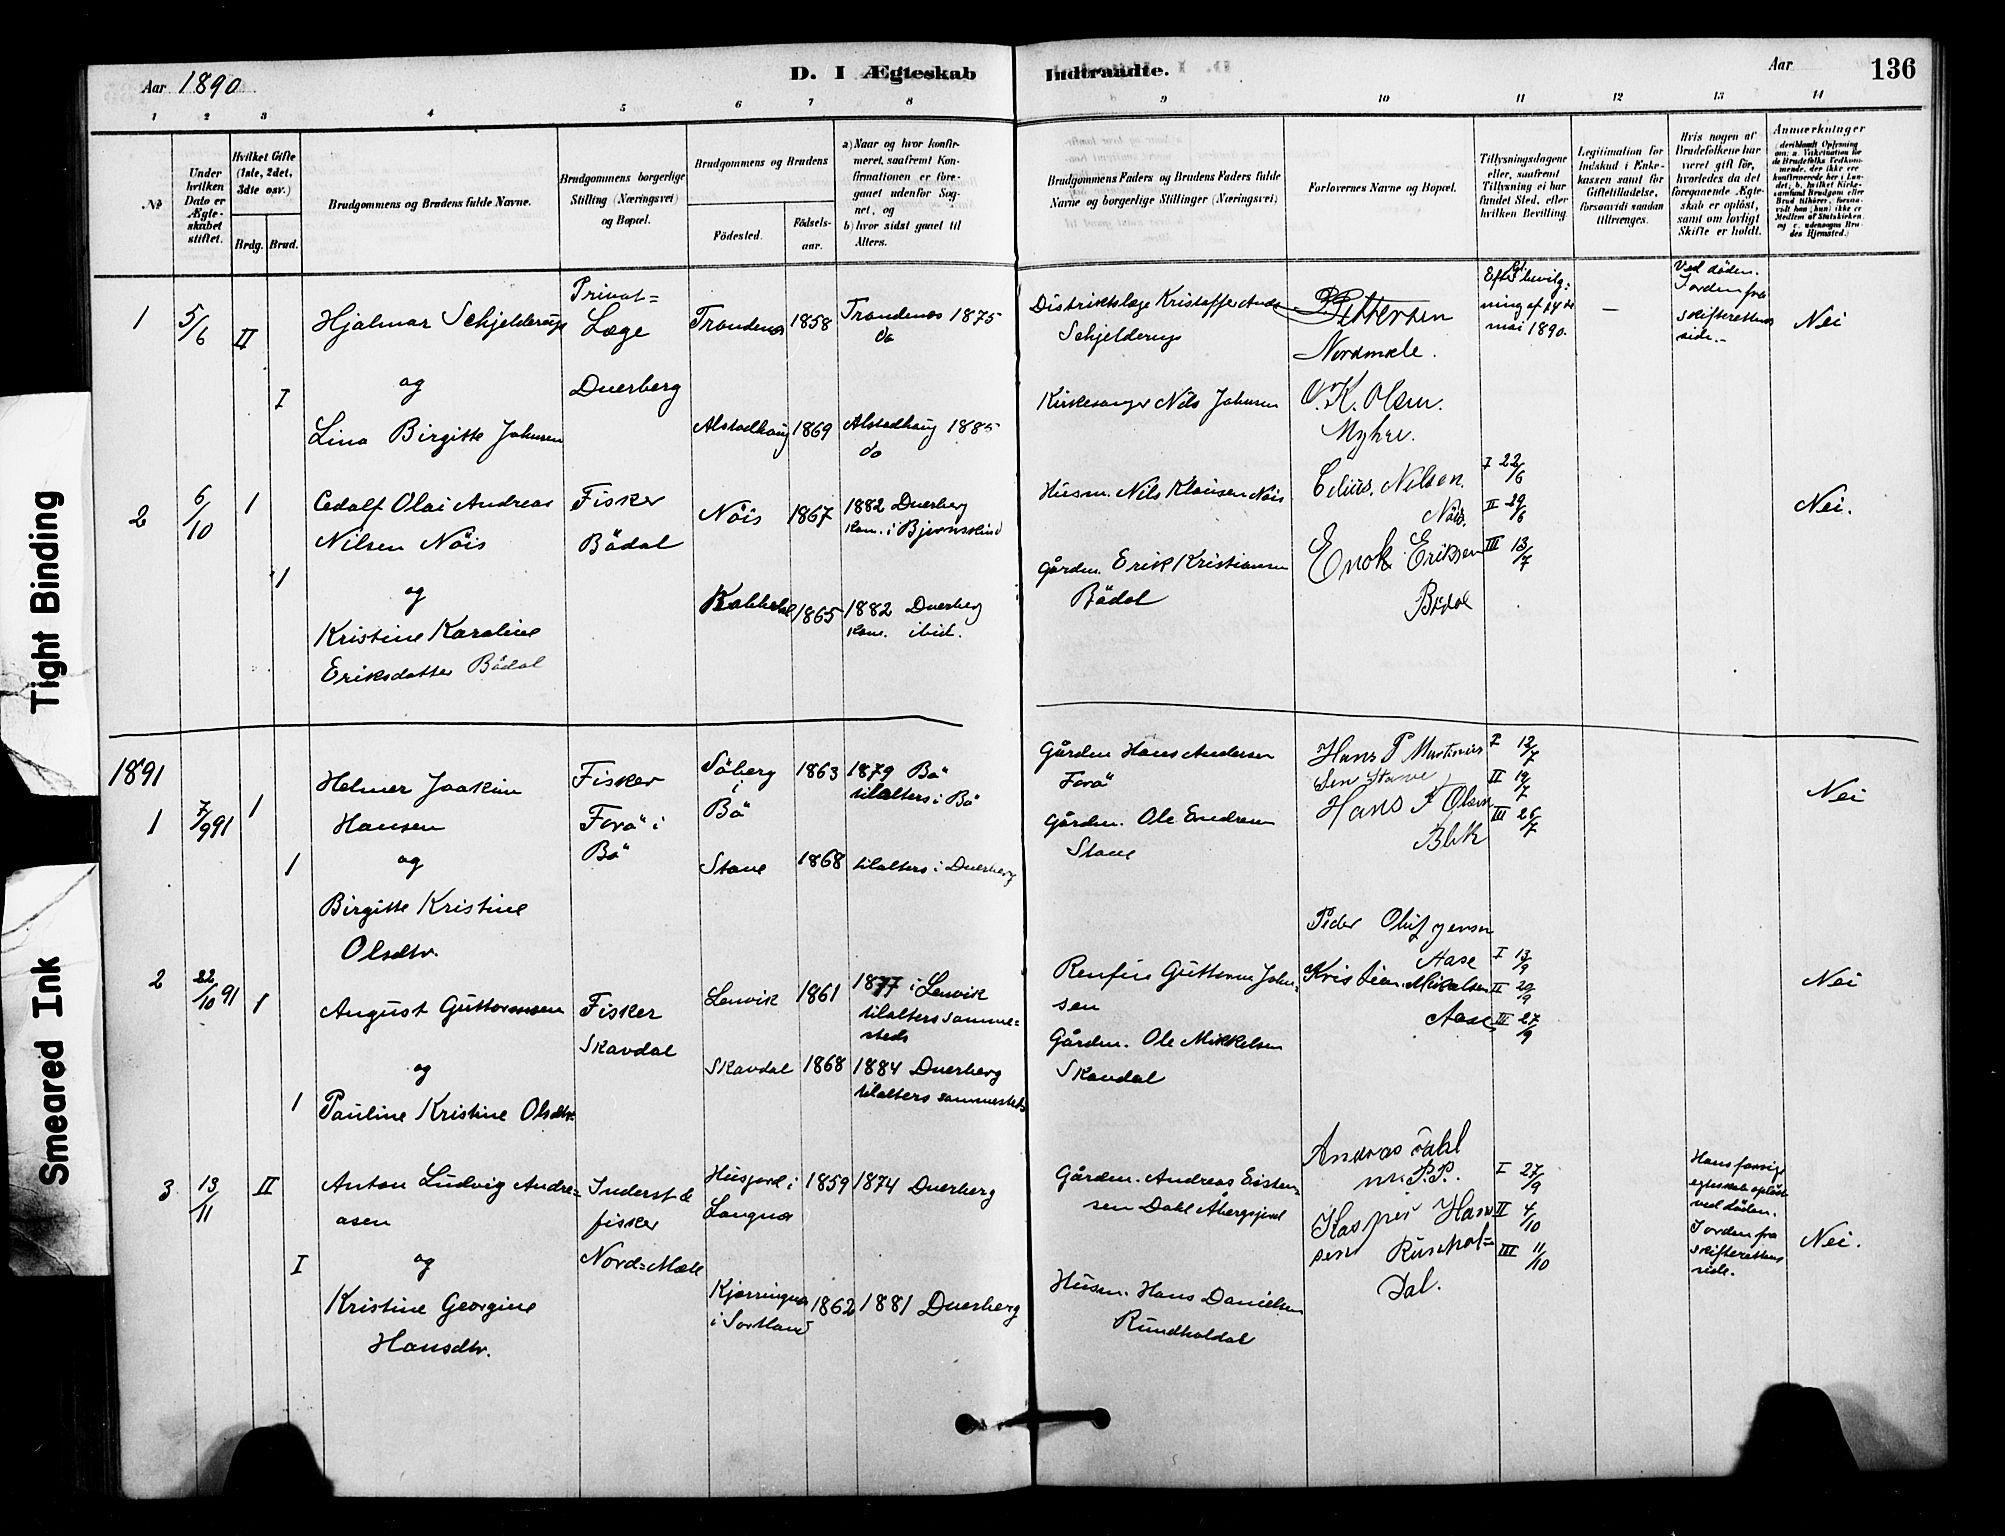 Aar 1890
D. I Ægteskab Indtraadte.
Aar
136
1 2 3 4 5 6 7 8 9 10 11 12 13 14
№
Under hvilken Dato er Ægteskabet stiftet.
Hvilket Gifte (1ste, 2det, 3die osv.)
Brdg. Brud.
Brudgommens og Brudens fulde Navne.
Brudgommens borgerlige Stilling (Næringsvei) og Bopæl.
Brudgommens og Brudens
Fødested.
Fødselsaar.
a) Naar og hvor konfirmeret, saafremt Konfirmationen er foregaaet udenfor Sognet, og
b) hvor sidst gaaet til Alters.
Brudgommens Faders og Brudens Faders fulde Navne og borgerlige Stillinger (Næringsvei)
Forlovernes Navne og Bopæl.
Tillysningsdagene eller, saafremt Tillysning ei har fundet Sted, efter hvilken Bevilling.
Legitimation for Indskud i Enkekassen samt for Giftetilladelse, forsaavidt saadan tiltrænges.
Hvis nogen af Brudefolkene har været gift før, hvorledes da det foregaaende Ægteskab er opløst, samt om lovligt Skifte er holdt.
Anmærkninger
1 5/6 II
Hjalmar Schjelderup
og
I
Lina Birgitte Johnsen
Privat=
Læge
Dverberg
Trondenes 1858 Trondenes 1875
do
Alstadhaug 1869 Alstadhaug 1885
do
Distriktslæge Kristoffer
Schjelderup
Kirkesanger Nils Johnsen
Pettersen
Nordmele.
O. K. Olsen.
Myhre.
Efter bevilg=
ning af 14de
mai 1890.
—
Ved døden.
Iorden fra
skifterettens
side.-
Nei
2 6/10 1
Edolf Olai Andreas
Nilsen Nöis
1
og
Kristine Karoline
Eriksdatter Bödal
Fisker
Bödal
Nöis 1867 1882 Dverberg
kom. i Bjørnskind
1865 1882 Dverberg
kom. ibid.
Husm. Nils Klausen Nöis
Gården. Erik Kristiansen
Bödal
Edius. Nilsen
Nöis.
Enok Eriksen
Bødal
I 22/6
II 29/6
III 13/7
Nei.
1891
1 7/9 91 1
Helmer Joakim
Hansen
1
og
Birgitte Kristine
Olsdtr.
Fisker
Forö i
Bö
Söberg
i
Bö
1863 1879 Bö
til alters i Bö
Stave 1868 til alters i Dverberg
Gården Hans Andersen
Forö
Gården. Ole Endresen
Stave
Hans P Martinus
sen Stave
Hans F Olsen
Blek
I 12/7
II 19/7
III 26/7
Nei
2 22/10 91 1
August Guttormsen
og
1
Pauline Kristine Olsdtr.
Fisker
Skavdal
Lenvik 1861 1877 i Lenvik
til alters samme=
steds
Skavdal 1868 1884 Dverberg
til alters sammesteds
Guttorm John=
sen
Gården. Ole Mikkelsen
Skavdal
Peder Oluf Jensen
Aase
Kristian Mikalsen
Aase
I 13/9
II 20/9
III 27/9
Nei
3 13/11 II
Anton Ludvig Andre=
asen
I
og
Kristine Georgine
Hansdtr.
Inderst &
fisker
Nord=Mele
Husjord i
Langnes
1859 1874 Dverberg
Kjørringnes
i Sortland
1862 1881 Dverberg
Gården. Andreas Eisten=
sen Dahl Åbergsjord
Husm. Hans Danielsen
Rundholdal
Andreas Dahl
m. P.P.
Kasper Han
sen
Dal.
I 27/9
II 4/10
III 11/10
Hans forrige
egteskab opløst
ved døden.
Iorden fra
skifterettens
side.
Nei.
Tight Binding
Smeared Ink